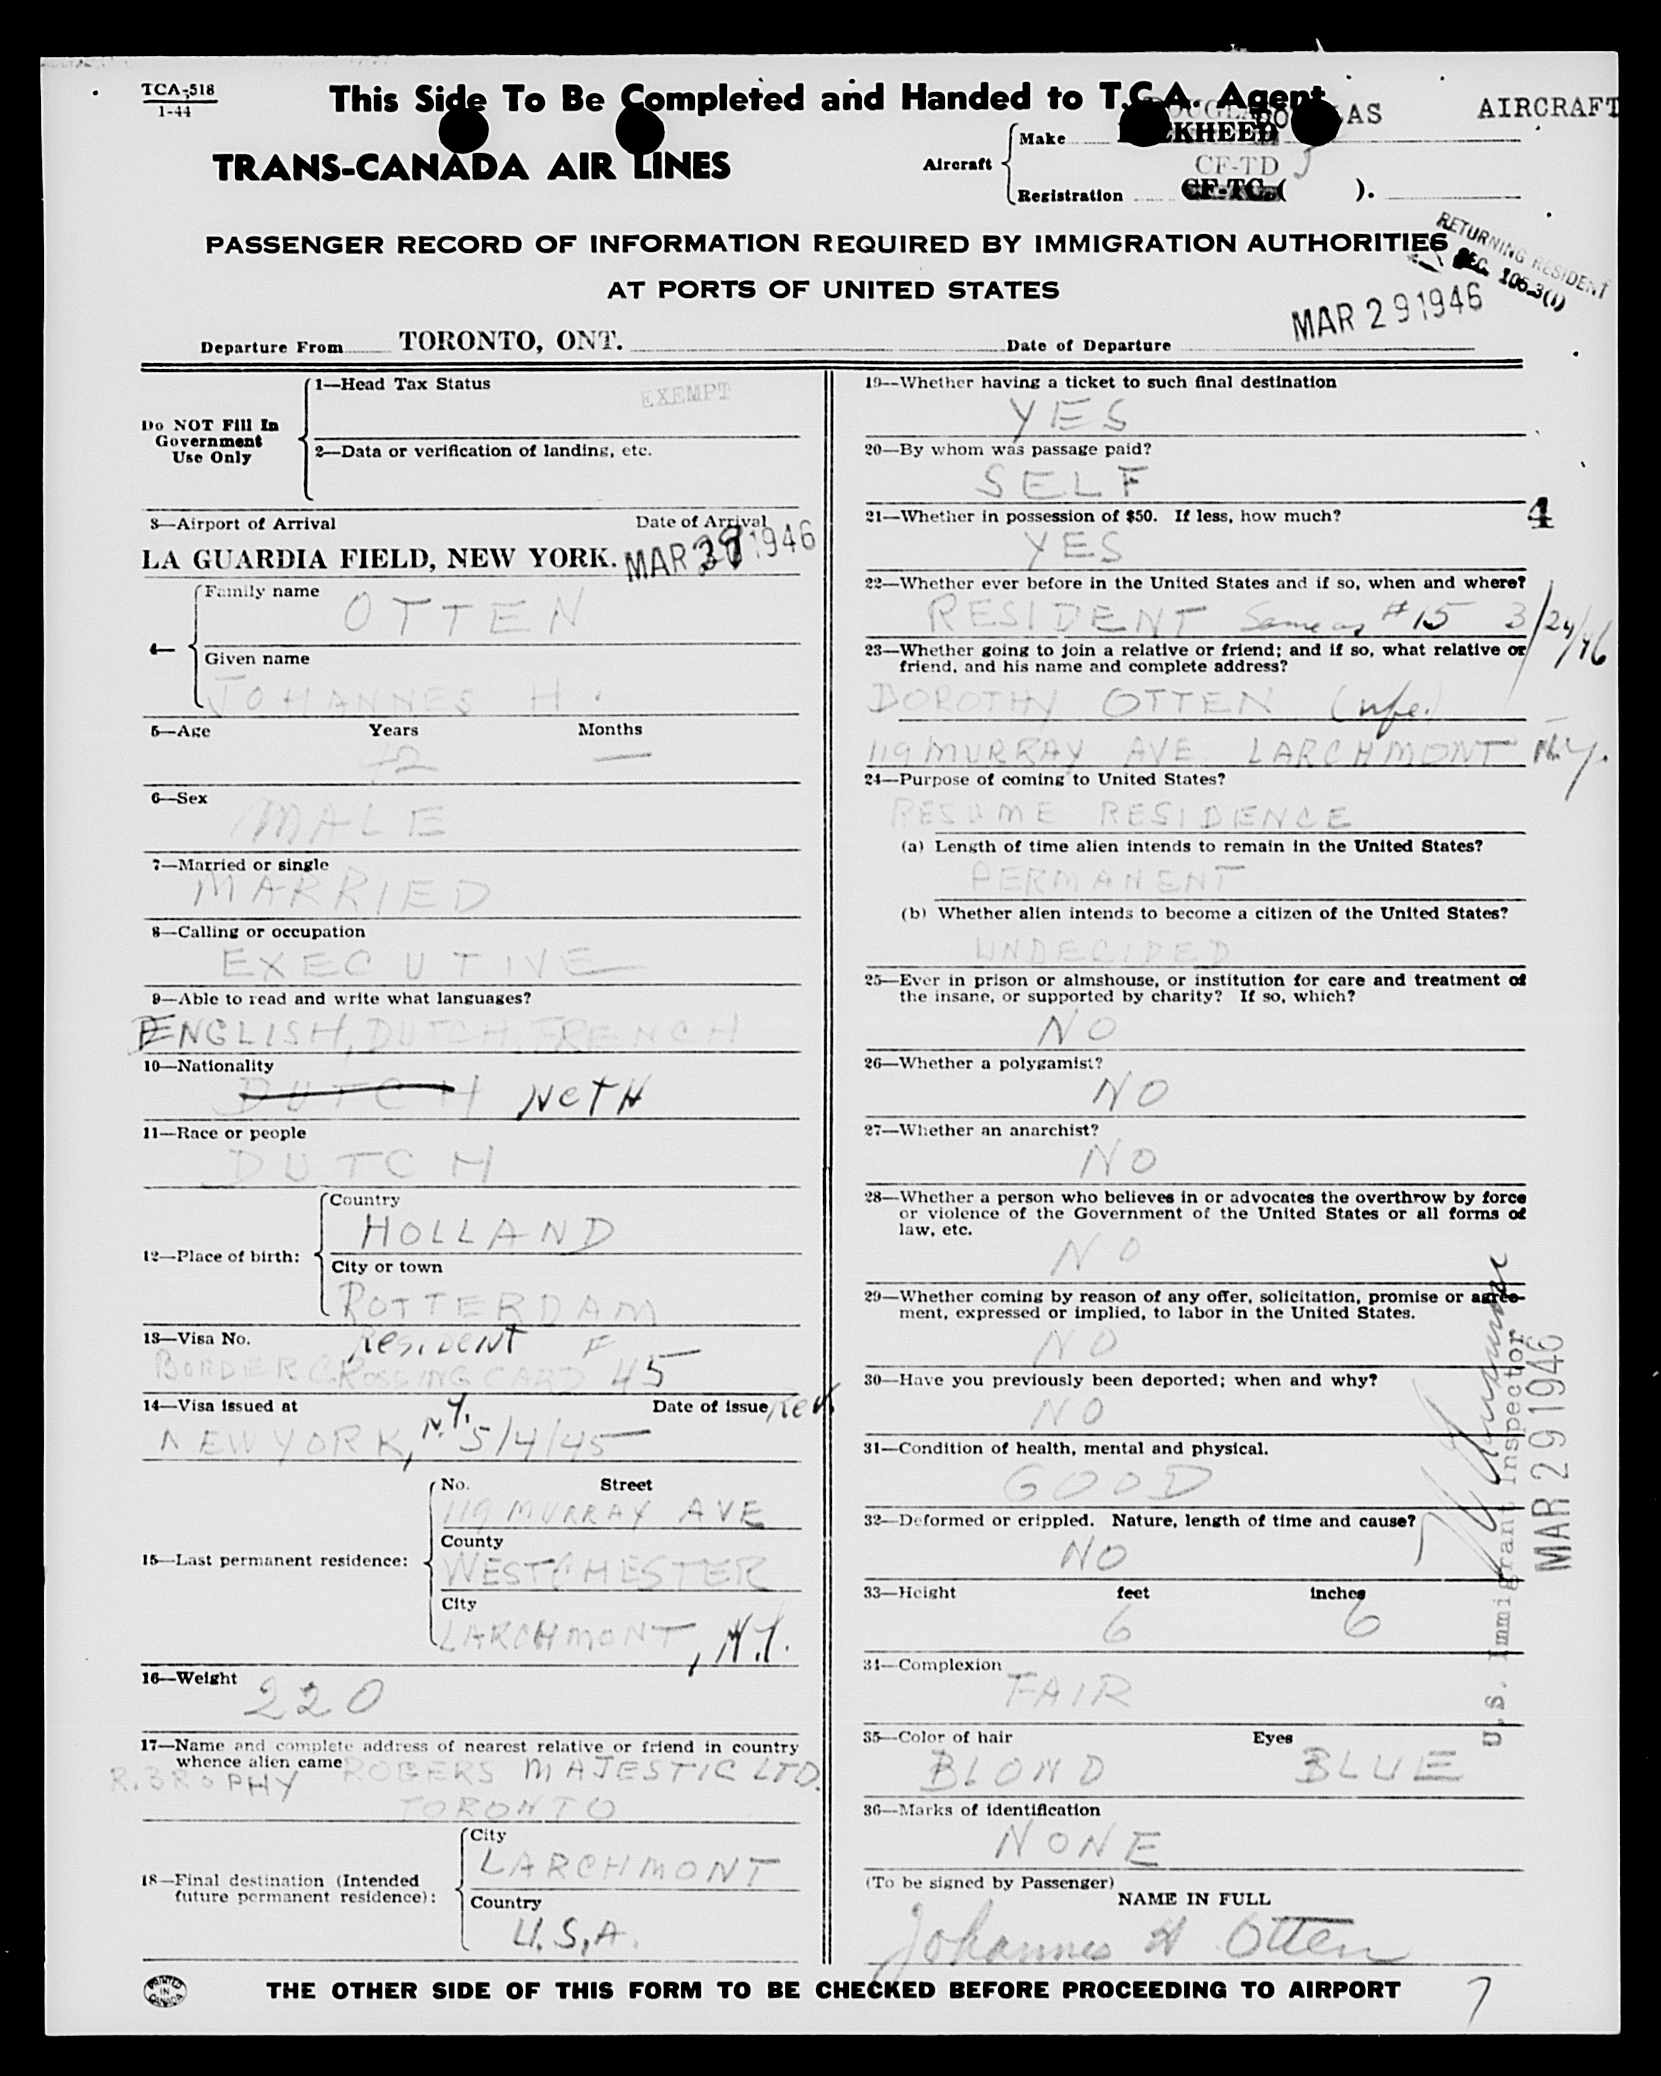 TCA-518
1-44
This Side To Be Completed and Handed to T.C.A. Agent
TRANS-CANADA AIR LINES
Aircraft
Make
DOUGLAS AIRCRAFT
Registration
CF-TD J
CF-TC. ( ).
PASSENGER RECORD OF INFORMATION REQUIRED BY IMMIGRATION AUTHORITIES
AT PORTS OF UNITED STATES
RETURNING RESIDENT
SEC. 105.3(1)
Departure From TORONTO, ONT. Date of Departure MAR 29 1946
Do NOT Fill In
Government
Use Only
1—Head Tax Status EXEMPT
2—Data or verification of landing, etc.
3—Airport of Arrival Date of Arrival
LA GUARDIA FIELD, NEW YORK. MAR 29 1946
4—
Family name
OTTEN
Given name
JOHANNES H.
5—Age Years Months
42 —
6—Sex
MALE
7—Married or single
MARRIED
8—Calling or occupation
EXECUTIVE
9—Able to read and write what languages?
ENGLISH, DUTCH, FRENCH
10—Nationality
DUTCH NETH
11—Race or people
DUTCH
12—Place of birth:
Country
HOLLAND
City or town
ROTTERDAM
13—Visa No. RESIDENT F
BORDER CROSSING CARD 45
14—Visa issued at Date of issue Rev
NEW YORK, N.Y. 5/4/45
15—Last permanent residence:
No. Street
119 MURRAY AVE
County
WESTCHESTER
City
LARCHMONT, N.Y.
16—Weight
220
17—Name and complete address of nearest relative or friend in country
whence alien came ROGERS MAJESTIC LTD.
R. BROPHY
TORONTO
18—Final destination (Intended
future permanent residence):
City
LARCHMONT
Country
U.S.A.
19—Whether having a ticket to such final destination
YES
20—By whom was passage paid?
SELF
21—Whether in possession of $50. If less, how much? 4
YES
22—Whether ever before in the United States and if so, when and where?
RESIDENT Same as #15 3/24/46
23—Whether going to join a relative or friend; and if so, what relative or
friend, and his name and complete address?
DOROTHY OTTEN (wife.)
119 MURRAY AVE LARCHMONT N.Y.
24—Purpose of coming to United States?
RESUME RESIDENCE
(a) Length of time alien intends to remain in the United States?
PERMANENT
(b) Whether alien intends to become a citizen of the United States?
UNDECIDED
25—Ever in prison or almshouse, or institution for care and treatment of
the insane, or supported by charity? If so, which?
NO
26—Whether a polygamist?
NO
27—Whether an anarchist?
NO
28—Whether a person who believes in or advocates the overthrow by force
or violence of the Government of the United States or all forms of
law, etc.
NO
29—Whether coming by reason of any offer, solicitation, promise or agree-
ment, expressed or implied, to labor in the United States.
NO
30—Have you previously been deported; when and why?
NO
31—Condition of health, mental and physical.
GOOD
32—Deformed or crippled. Nature, length of time and cause?
NO
33—Height feet inches
6 6
34—Complexion
FAIR
35—Color of hair Eyes
BLOND BLUE
36—Marks of identification
NONE
U.S. Immigrant Inspector
MAR 29 1946
(To be signed by Passenger)
NAME IN FULL
Johannes H Otten
PRINTED IN CANADA
THE OTHER SIDE OF THIS FORM TO BE CHECKED BEFORE PROCEEDING TO AIRPORT
7